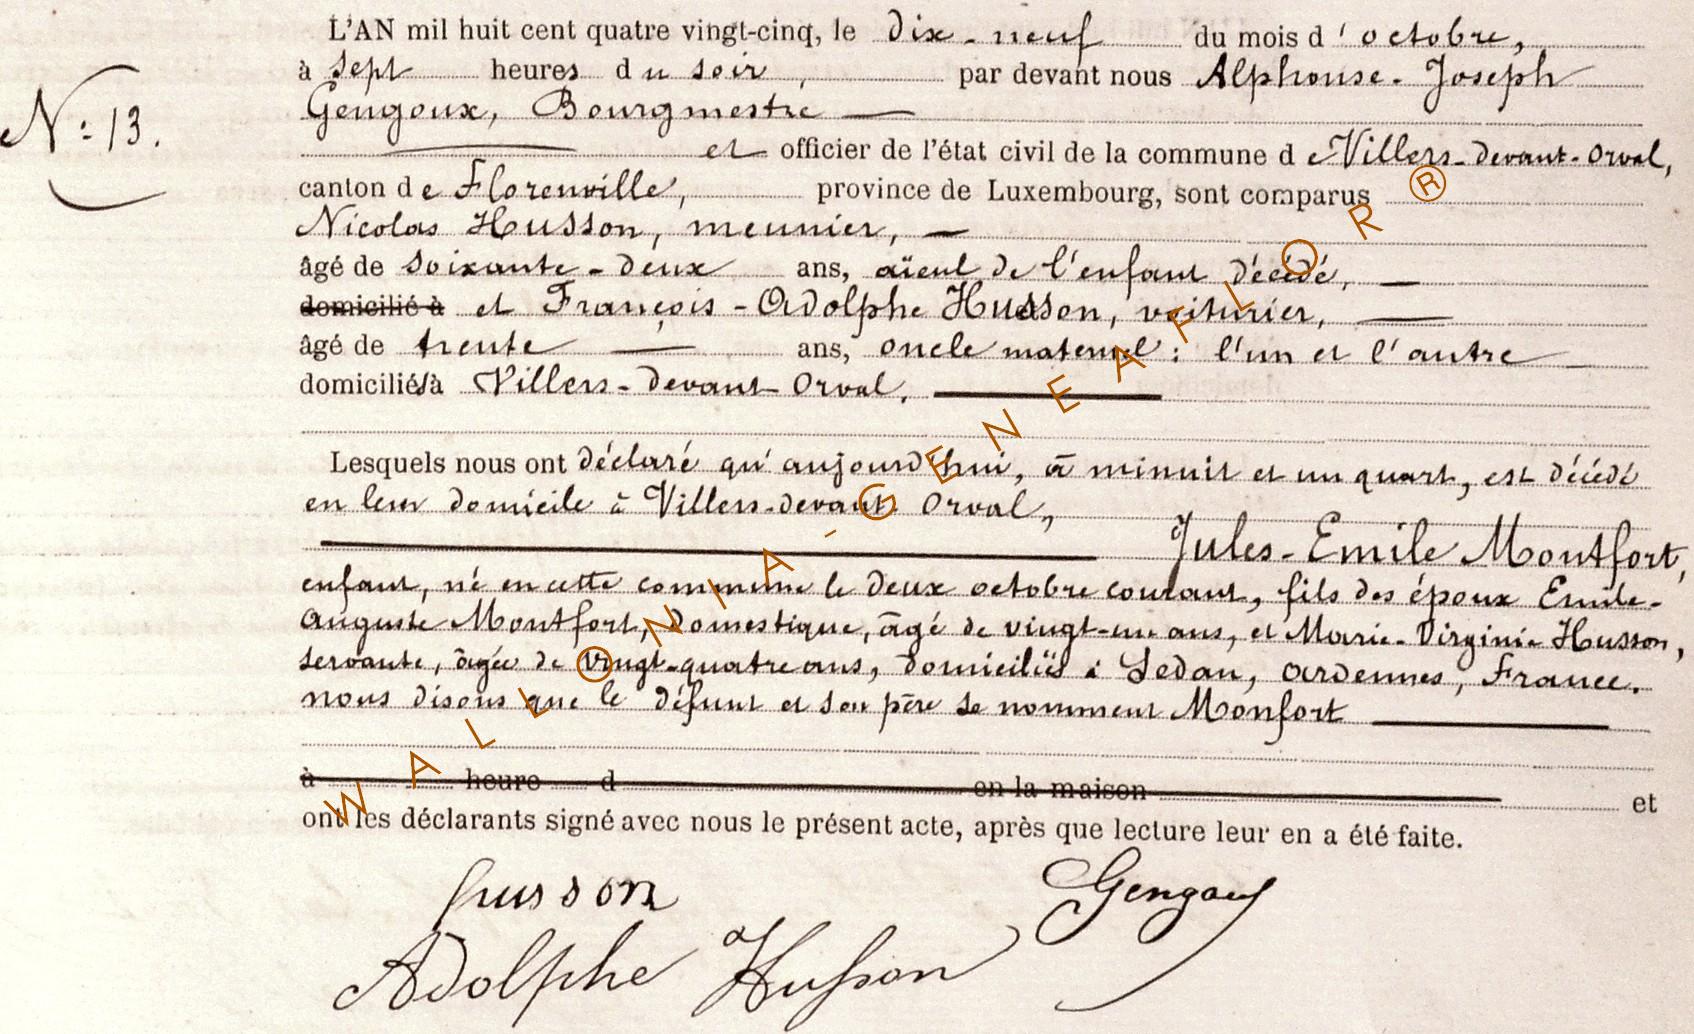 L'AN mil huit cent quatre vingt-cinq, le dix-neuf du mois d'octobre,
à sept heures du soir par devant nous Alphonse-Joseph
N: 13.
Gengoux, Bourgmestre
et officier de l'état civil de la commune de Villers-devant-Orval,
canton de Florenville, province de Luxembourg, sont comparus
Nicolas Husson, meunier,
âgé de soixante-deux ans, aïeul de l'enfant décédé,
domicilié à et François-Adolphe Husson, voiturier,
âgé de trente ans, oncle maternel: l'un et l'autre
domiciliés à Villers-devant-Orval.
Lesquels nous ont déclaré qu'aujourd'hui, à minuit et un quart, est décédé
en leur domicile à Villers-devant Orval,
Jules-Emile Montfort,
enfant, né en cette commune le deux octobre courant, fils des époux Emile-
Auguste Montfort, domestique, âgé de vingt-un ans, et Marie-Virginie Husson,
servante, âgée de vingt-quatre ans, domiciliés à Sedan, Ardennes, France.
nous disons que le défunt et son père se nomment Monfort
à heure d en la maison et
ont les déclarants signé avec nous le présent acte, après que lecture leur en a été faite.
husson Gengoux
Adolphe Husson
WALLONIA-GENEAFLOR®